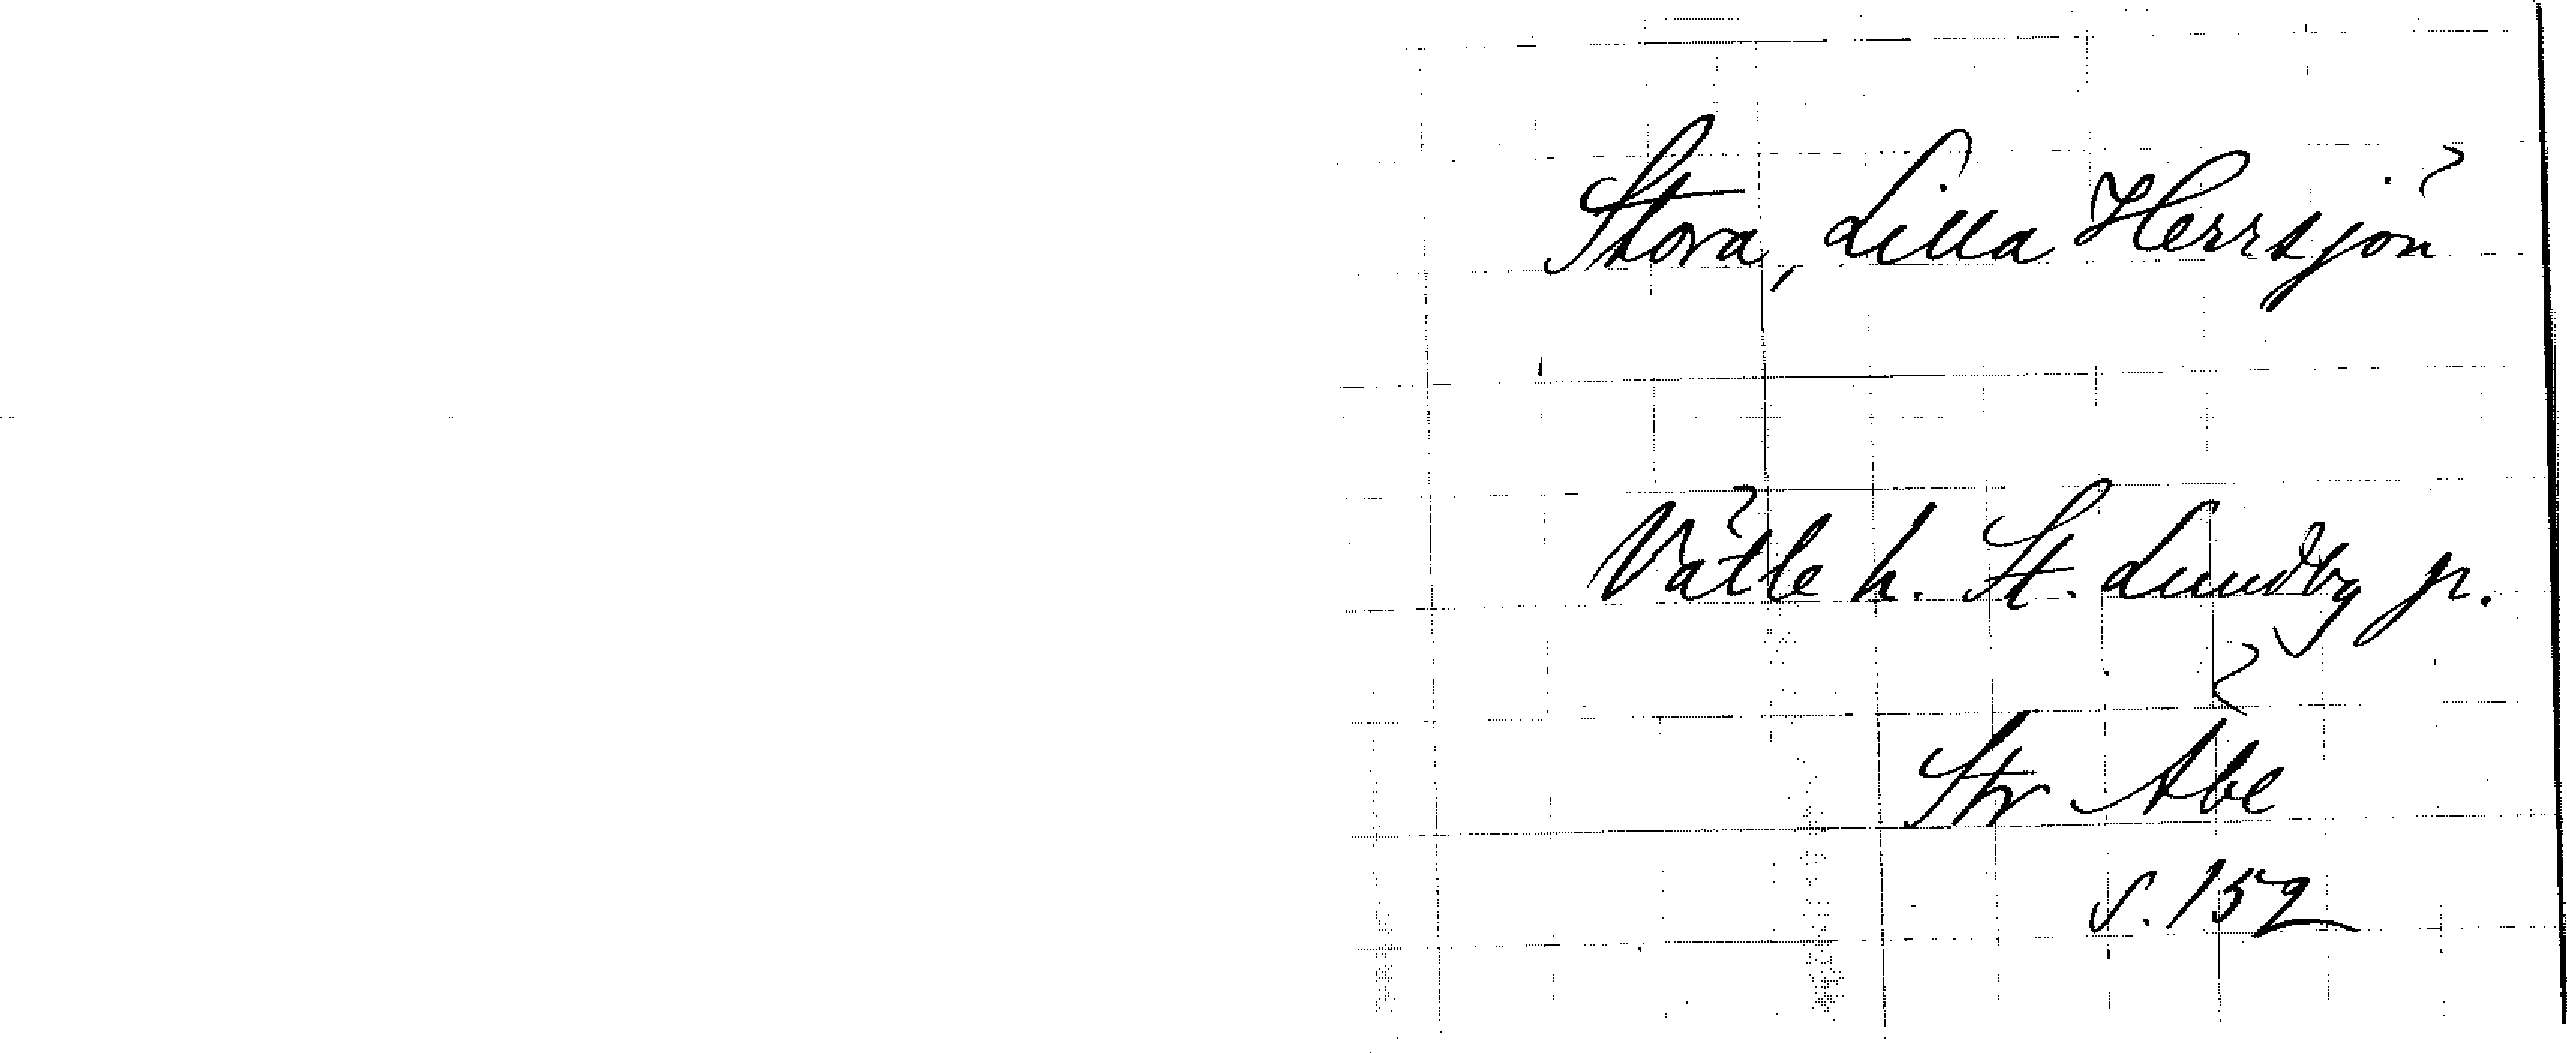 Stora, Lilla Herrsjön
Vättle h. St. Lundby p.
Str Abe
s. 152